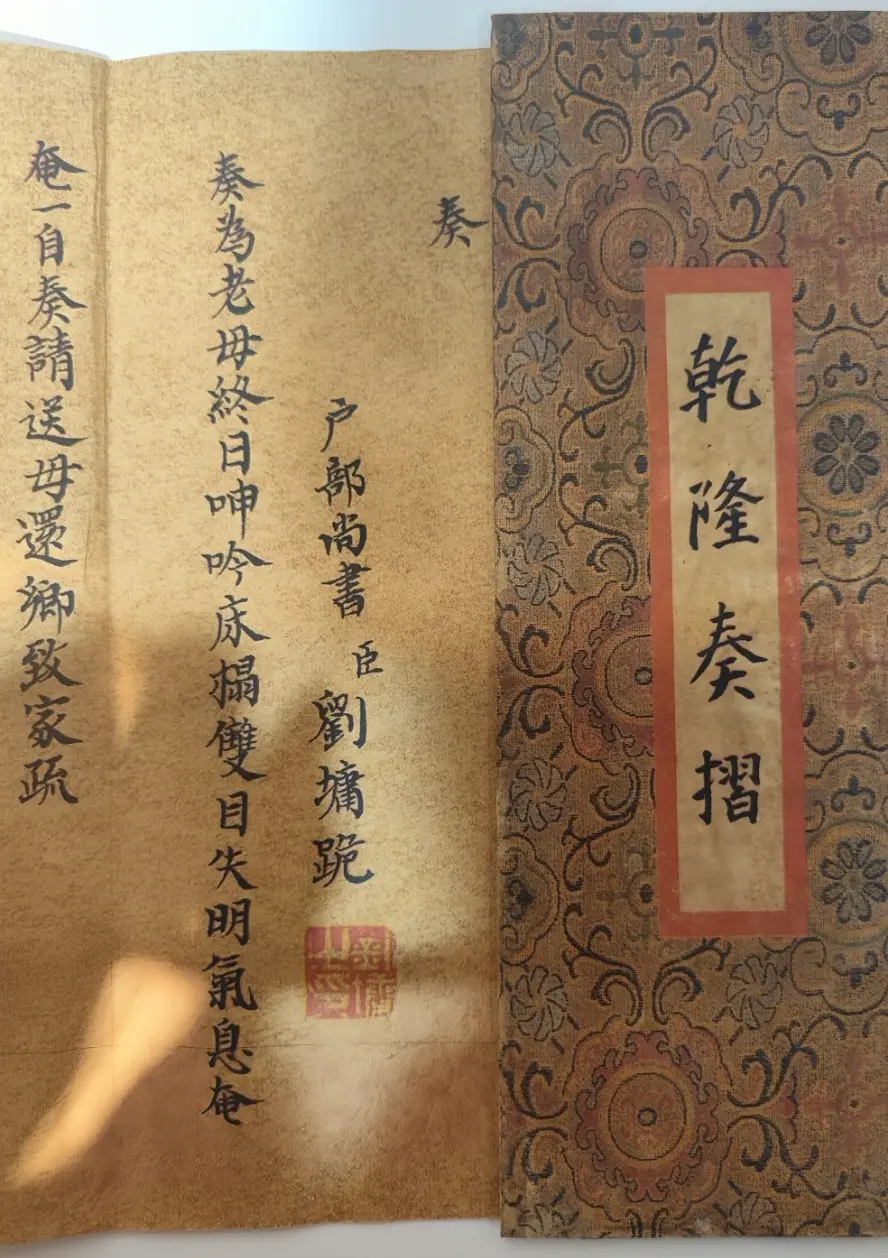 乾隆奏摺
奏
户部尚書臣劉墉跪
奏為老母終日呻吟床榻雙目失明氣息奄
奄一自奏請送母還鄉致家疏